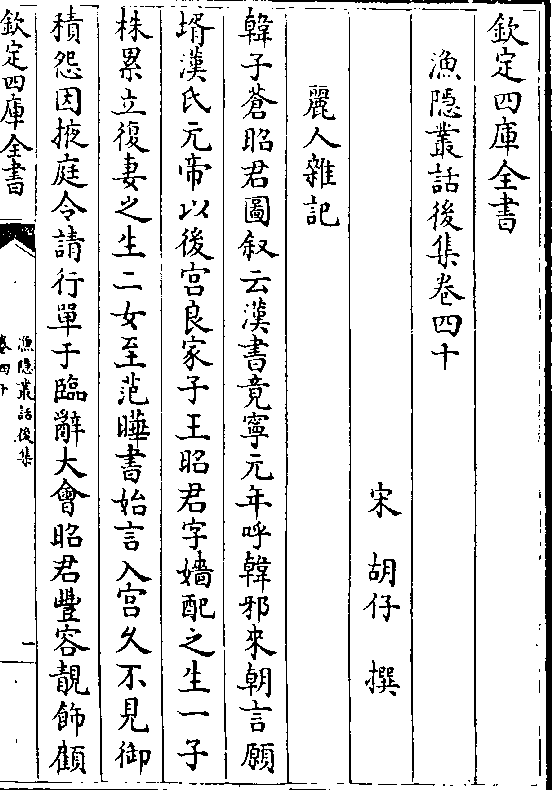 欽定四庫全書
漁隠叢話後集卷四十
宋 胡仔 撰
麗人雜記
韓子蒼昭君圖叙云漢書竟寧元年呼韓邪來朝言願
壻漢氏元帝以後宫良家子王昭君字嬙配之生一子
株累立復妻之生二女至范曄書始言入宫久不見御
積怨因掖庭令請行單于臨辭大會昭君豐容靚飾顧
欽定四庫全書
漁隠叢話後集
卷四十
一